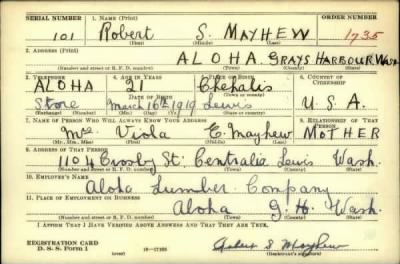 SERIAL NUMBER 1. NAME (Print) ORDER NUMBER
101 Robert S. MAYHEW 1735
(First) (Middle) (Last)
2. ADDRESS (Print)
ALOHA GRAYS HARBOUR WASH
(Number and street or R. F. D. number) (Town) (County) (State)
3. TELEPHONE 4. AGE IN YEARS 5. PLACE OF BIRTH 6. COUNTRY OF CITIZENSHIP
ALOHA 21 Chehalis
DATE OF BIRTH (Town or county)
Store March 16th 1919 Lewis U.S.A.
(Exchange) (Number) (Mo.) (Day) (Yr.) (State or country)
7. NAME OF PERSON WHO WILL ALWAYS KNOW YOUR ADDRESS 8. RELATIONSHIP OF THAT PERSON
Mrs. Viola E. Mayhew MOTHER
(Mr., Mrs., Miss) (First) (Middle) (Last)
9. ADDRESS OF THAT PERSON
1104 Crosby St. Centralia Lewis Wash.
(Number and street or R. F. D. number) (Town) (County) (State)
10. EMPLOYER'S NAME
Aloha Lumber Company
11. PLACE OF EMPLOYMENT OR BUSINESS
Aloha G. H. Wash.
(Number and street or R. F. D. number) (Town) (County) (State)
I AFFIRM THAT I HAVE VERIFIED ABOVE ANSWERS AND THAT THEY ARE TRUE.
REGISTRATION CARD
D. S. S. Form 1 (over) Robert S Mayhew